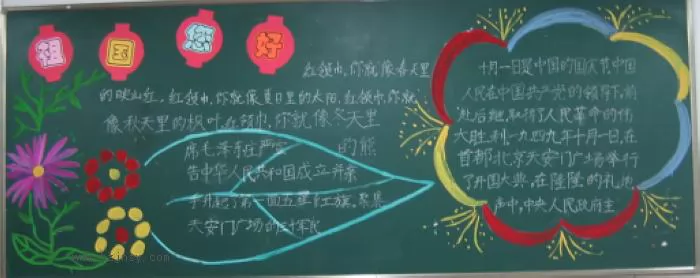 祖国您好
红领巾,你就像春天里
的映山红,红领巾,你就像夏日里的太阳,红领巾,你就
像秋天里的枫叶,红领巾,你就像冬天里
的熊
席毛泽东庄严宣
告中华人民共和国成立并亲
手升起了第一面五星红旗。聚集
天安门广场的三十军民
十月一日是中国的国庆节,中国
人民在中国共产党的领导下,前
赴后继,取得了人民革命的伟
大胜利.一九四九年十月一日,在
首都北京天安门广场举行
了开国大典,在隆隆的礼炮
声中,中央人民政府主